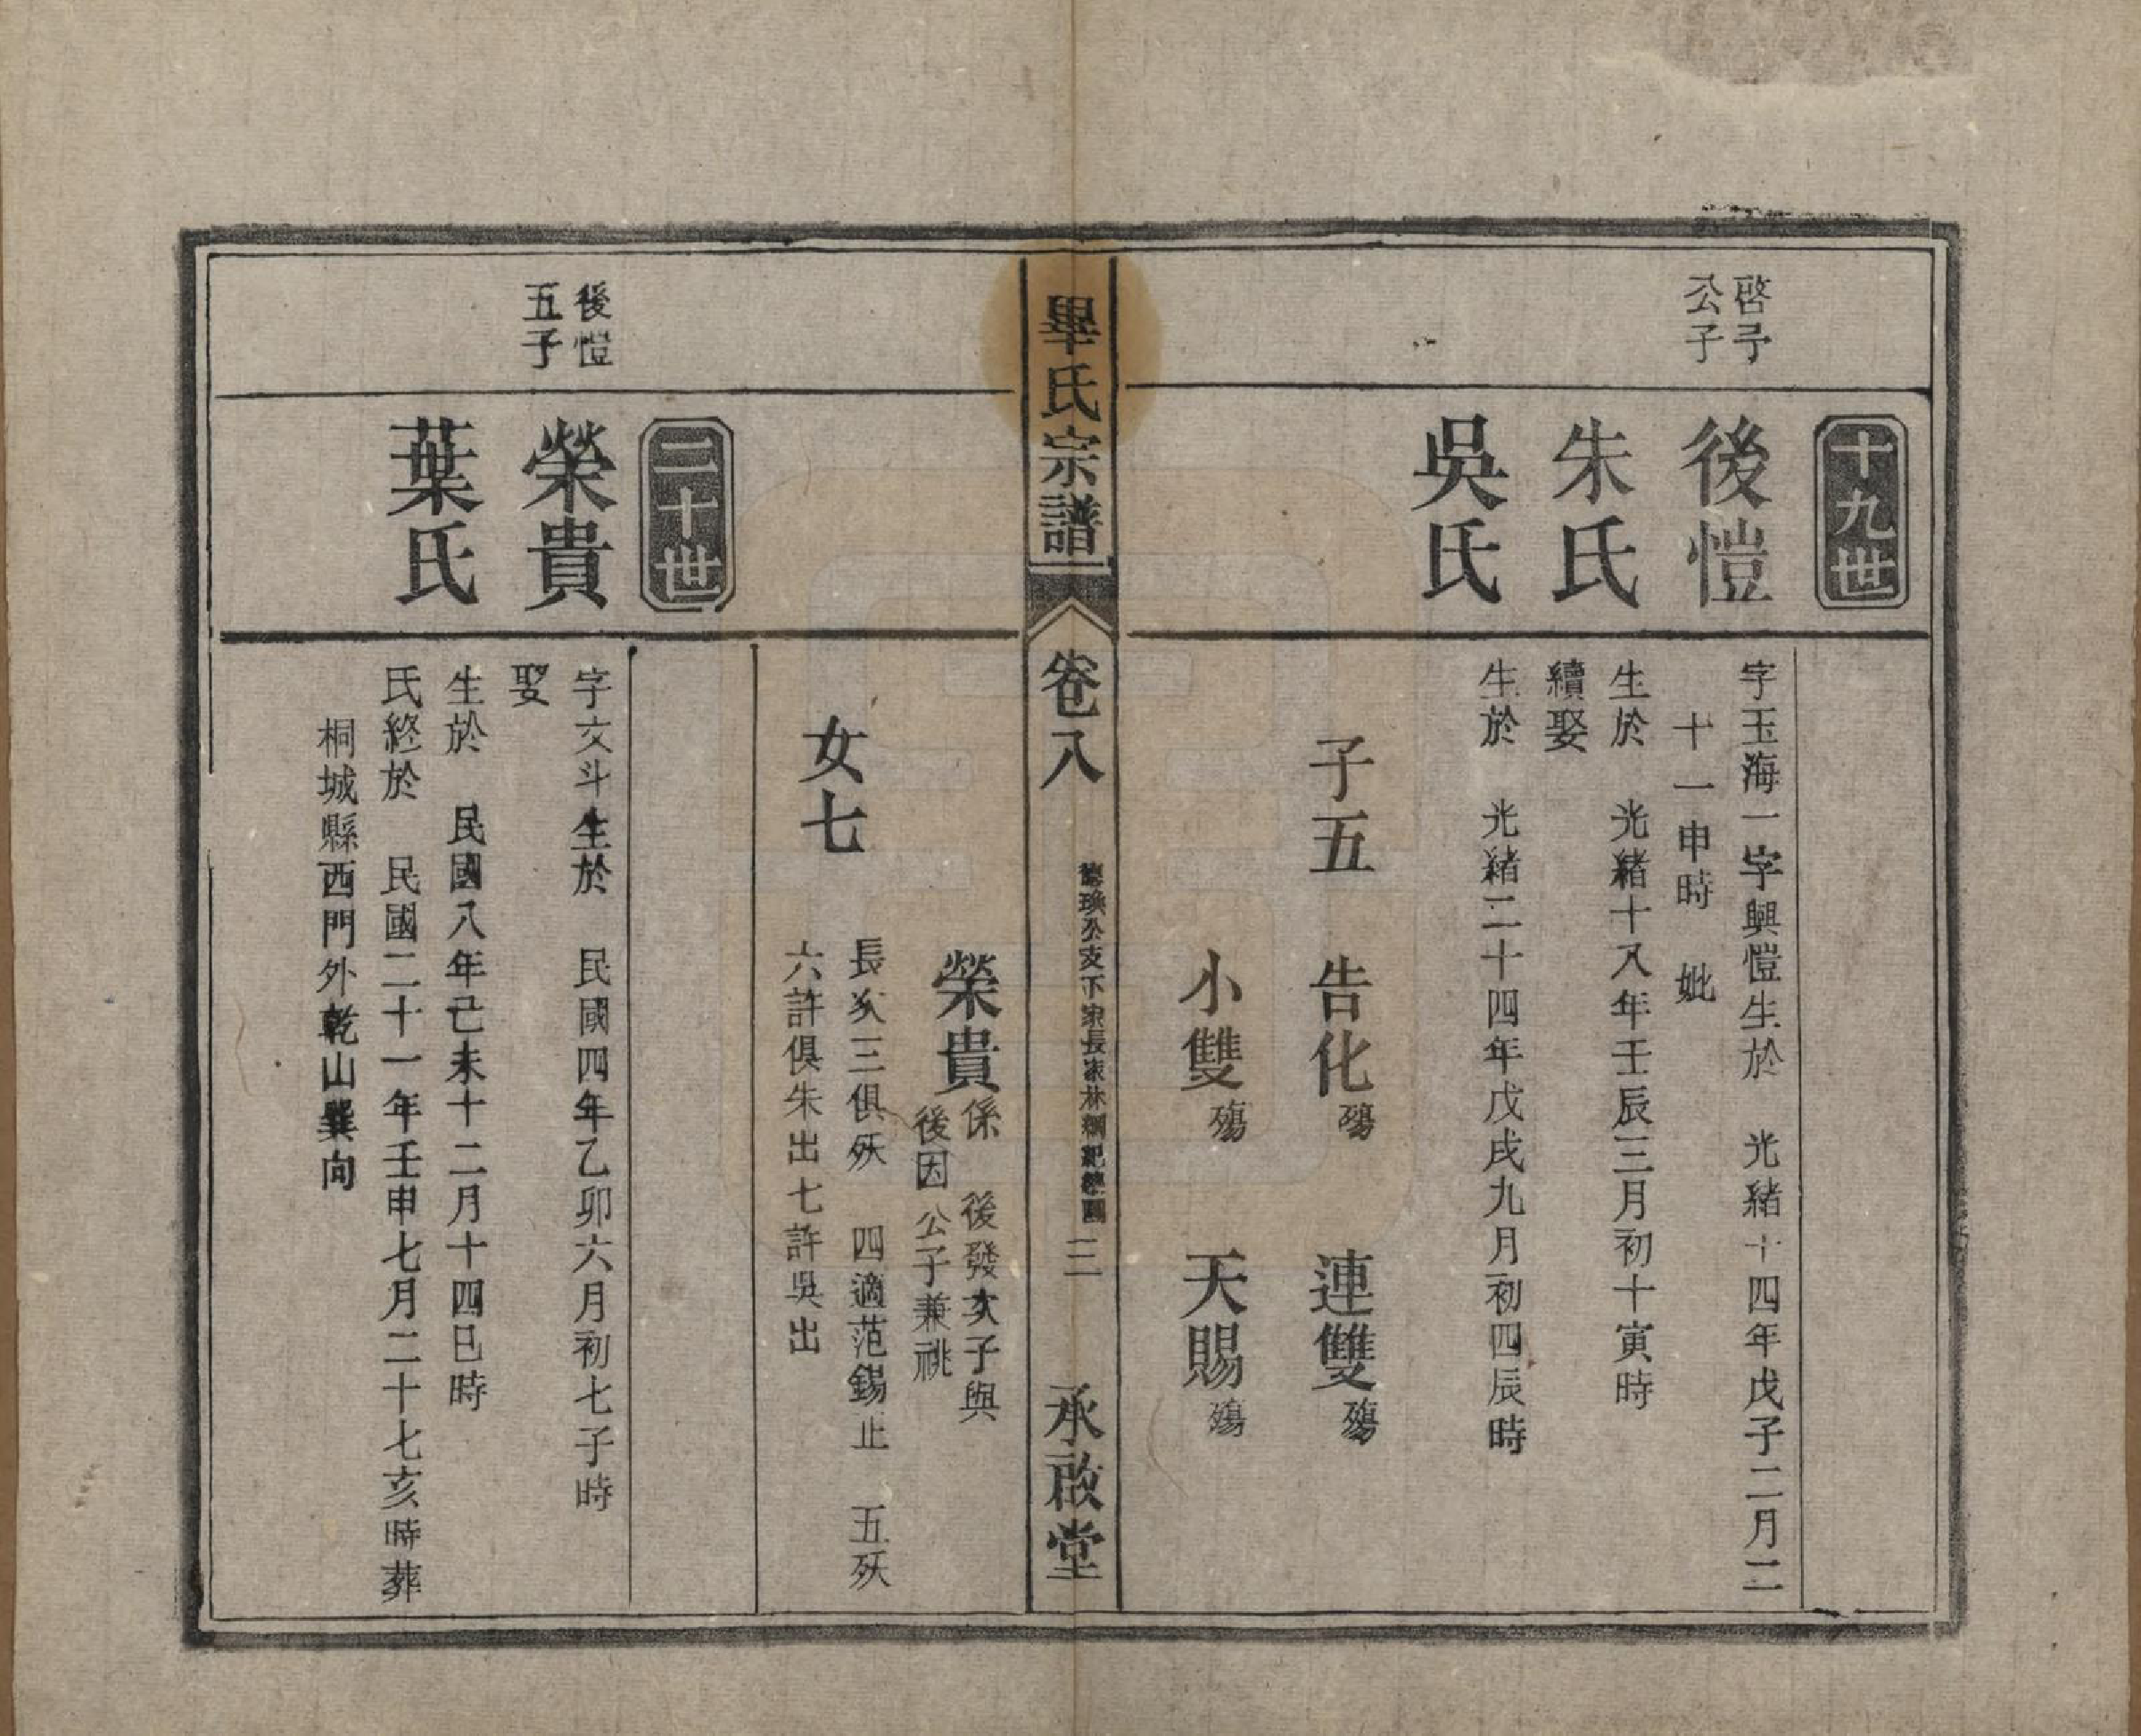 十九世
啓予
公子
後愷
字玉海一字興愷生於 光緒十四年戊子二月二
十一申時 妣
朱氏
生於 光緒十八年壬辰三月初十寅時
續娶
吳氏
生於 光緒二十四年戊戌九月初四辰時
子五 告化殤 連雙殤
小雙殤 天賜殤
畢氏宗譜
卷八
德瑛公支下家長家林稠紀榮圖
三
承啟堂
榮貴係 後發次子與
後因公子兼祧
女七
長次三俱殀 四適范錫止 五殀
六許俱朱出七許吳出
二十世
後愷
五子
榮貴
字文斗生於 民國四年乙卯六月初七子時
娶
葉氏
生於 民國八年己未十二月十四巳時
氏終於 民國二十一年壬申七月二十七亥時葬
桐城縣西門外乾山巽向